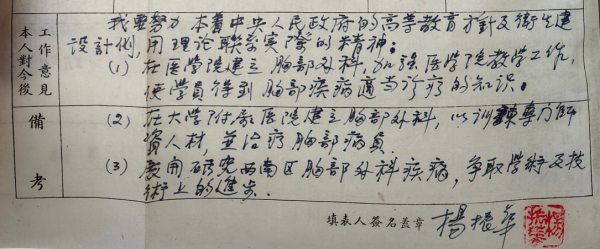 本人對今後
工作意見
我要努力 本着中央人民政府的高等教育方針及衛生建
設計劃,用理論联系实際的精神:
(1) 在医学院建立胸部外科,加强医学院教学工作,
使学員得到胸部疾病適当诊疗的知识。
備考
(2) 在大学附属医院建立胸部外科,以訓練專门師
資人材,並治疗胸部病員.
(3) 展開研究西南区胸部外科疾病,争取学術及技
術上的進步.
填表人簽名蓋章 楊振華
楊振華